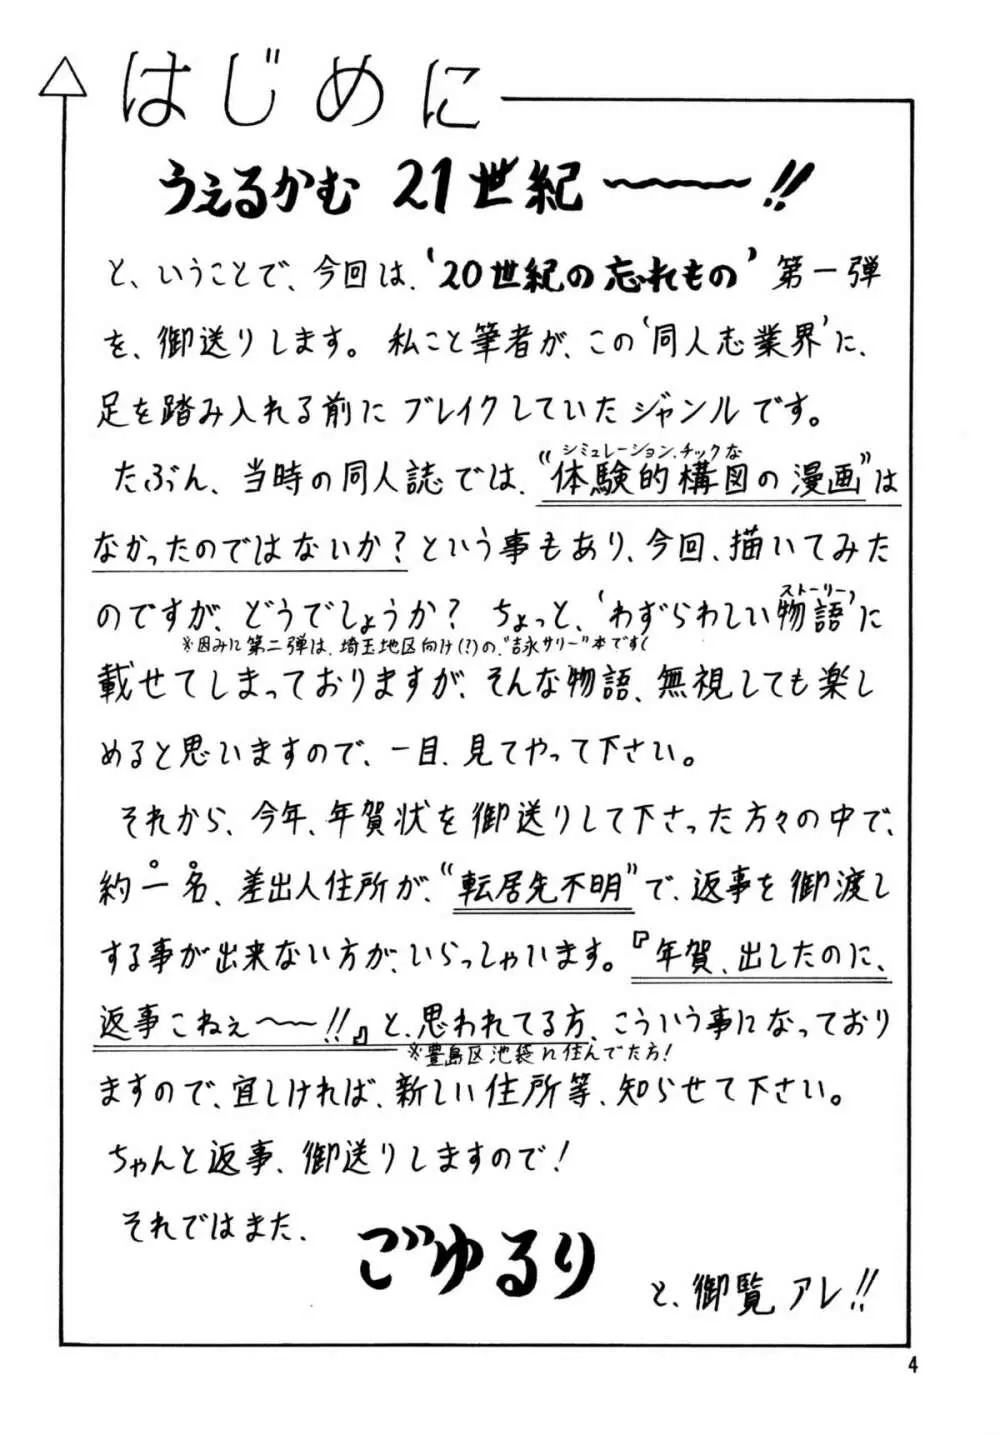 はじめに
うぇるかむ 21世紀〜〜!!
と、いうことで、今回は、‘20世紀の忘れもの’第一弾
を、御送りします。私こと筆者が、この‘同人志業界’に、
足を踏み入れる前にブレイクしていたジャンルです。
シミュレーション、チックな
たぶん、当時の同人誌では、“体験的構図の漫画”は
なかったのではないか？という事もあり、今回、描いてみた
ストーリー
のですが、どうでしょうか？ ちょっと、‘わずらわしい物語’に
※因みに第二弾は、埼玉地区向け(?)の、“吉永サリー”本です(
載せてしまっておりますが、そんな物語、無視しても楽し
めると思いますので、一目、見てやって下さい。
それから、今年、年賀状を御送りして下さった方々の中で、
約一名、差出人住所が、“転居先不明”で、返事を御渡し
する事が出来ない方が、いらっしゃいます。『年賀、出したのに、
返事こねぇ〜〜!!』と、思われてる方、こういう事になっており
※豊島区池袋に住んでた方!
ますので、宜しければ、新しい住所等、知らせて下さい。
ちゃんと返事、御送りしますので!
それではまた、
ごゆるり
と、御覧アレ!!
4